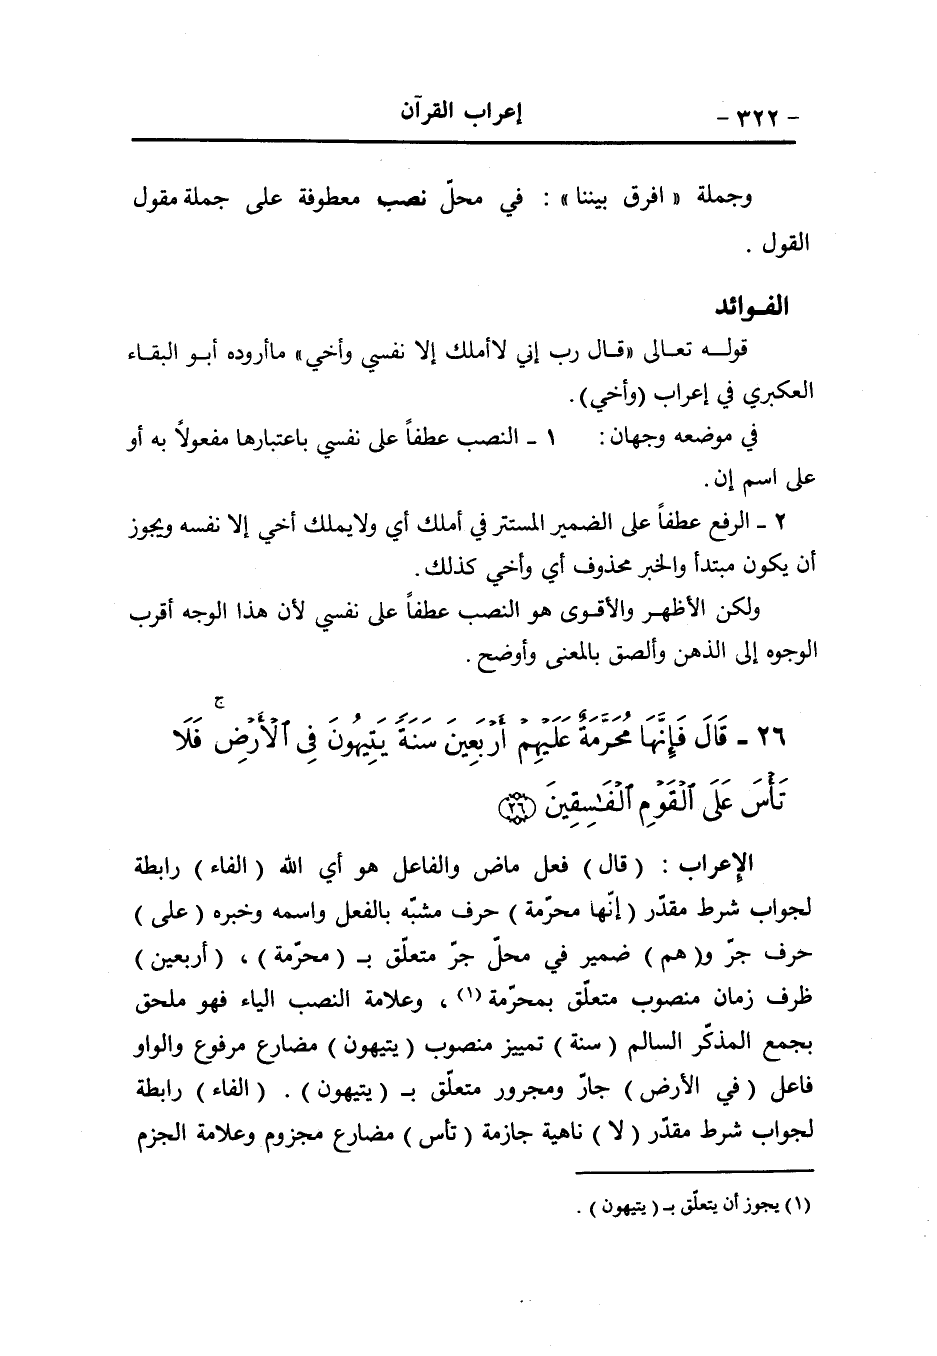 - ٣٢٢ - إعراب القرآن
وجملة « افرق بيننا » : في محلّ نصب معطوفة على جملة مقول
القول .
الفـوائد
قولـــه تعـالى «قـال رب إني لاأملك إلا نفسي وأخي» ماأروده أبـو البقـاء
العكبري في إعراب (وأخي).
في موضعه وجهان : ١ ـ النصب عطفاً على نفسي باعتبارها مفعولاً به أو
على اسم إن.
٢ ـ الرفع عطفاً على الضمير المستتر في أملك أي ولايملك أخي إلا نفسه ويجوز
أن يكون مبتدأ والخبر محذوف أي وأخي كذلك.
ولكن الأظهـر والأقـوى هو النصب عطفاً على نفسي لأن هذا الوجه أقرب
الوجوه إلى الذهن وألصق بالمعنى وأوضح.
٢٦ - قَالَ فَإِنَّهَا مُحَرَّمَةٌ عَلَيْهِمْ أَرْبَعِينَ سَنَةً يَتِيهُونَ فِى ٱلْأَرْضِ ۚ فَلَا
تَأْسَ عَلَى ٱلْقَوْمِ ٱلْفَـٰسِقِينَ ﴿٢٦﴾
الإعراب : ( قال ) فعل ماض والفاعل هو أي الله ( الفاء ) رابطة
لجواب شرط مقدّر ( إنّها محرّمة ) حرف مشبّه بالفعل واسمه وخبره ( على )
حرف جرّ و( هم ) ضمير في محلّ جرّ متعلّق بـ ( محرّمة ) ، ( أربعين )
ظرف زمان منصوب متعلّق بمحرّمة (١) ، وعلامة النصب الياء فهو ملحق
بجمع المذكّر السالم ( سنة ) تمييز منصوب ( يتيهون ) مضارع مرفوع والواو
فاعل ( في الأرض ) جارّ ومجرور متعلّق بـ ( يتيهون ) . ( الفاء ) رابطة
لجواب شرط مقدّر ( لا ) ناهية جازمة ( تأس ) مضارع مجزوم وعلامة الجزم
(١) يجوز أن يتعلّق بـ ( يتيهون ) .